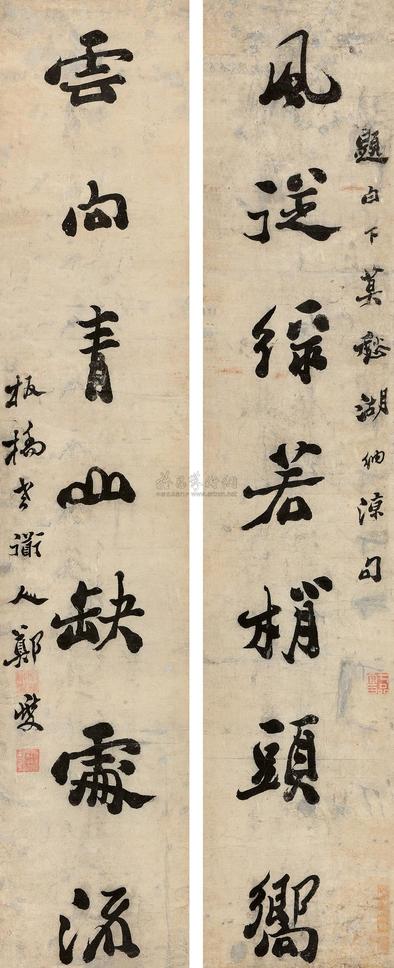 題白下莫愁湖納涼句
風從綠若梢頭嚮
雲向青山缺處流
板橋老道人鄭燮